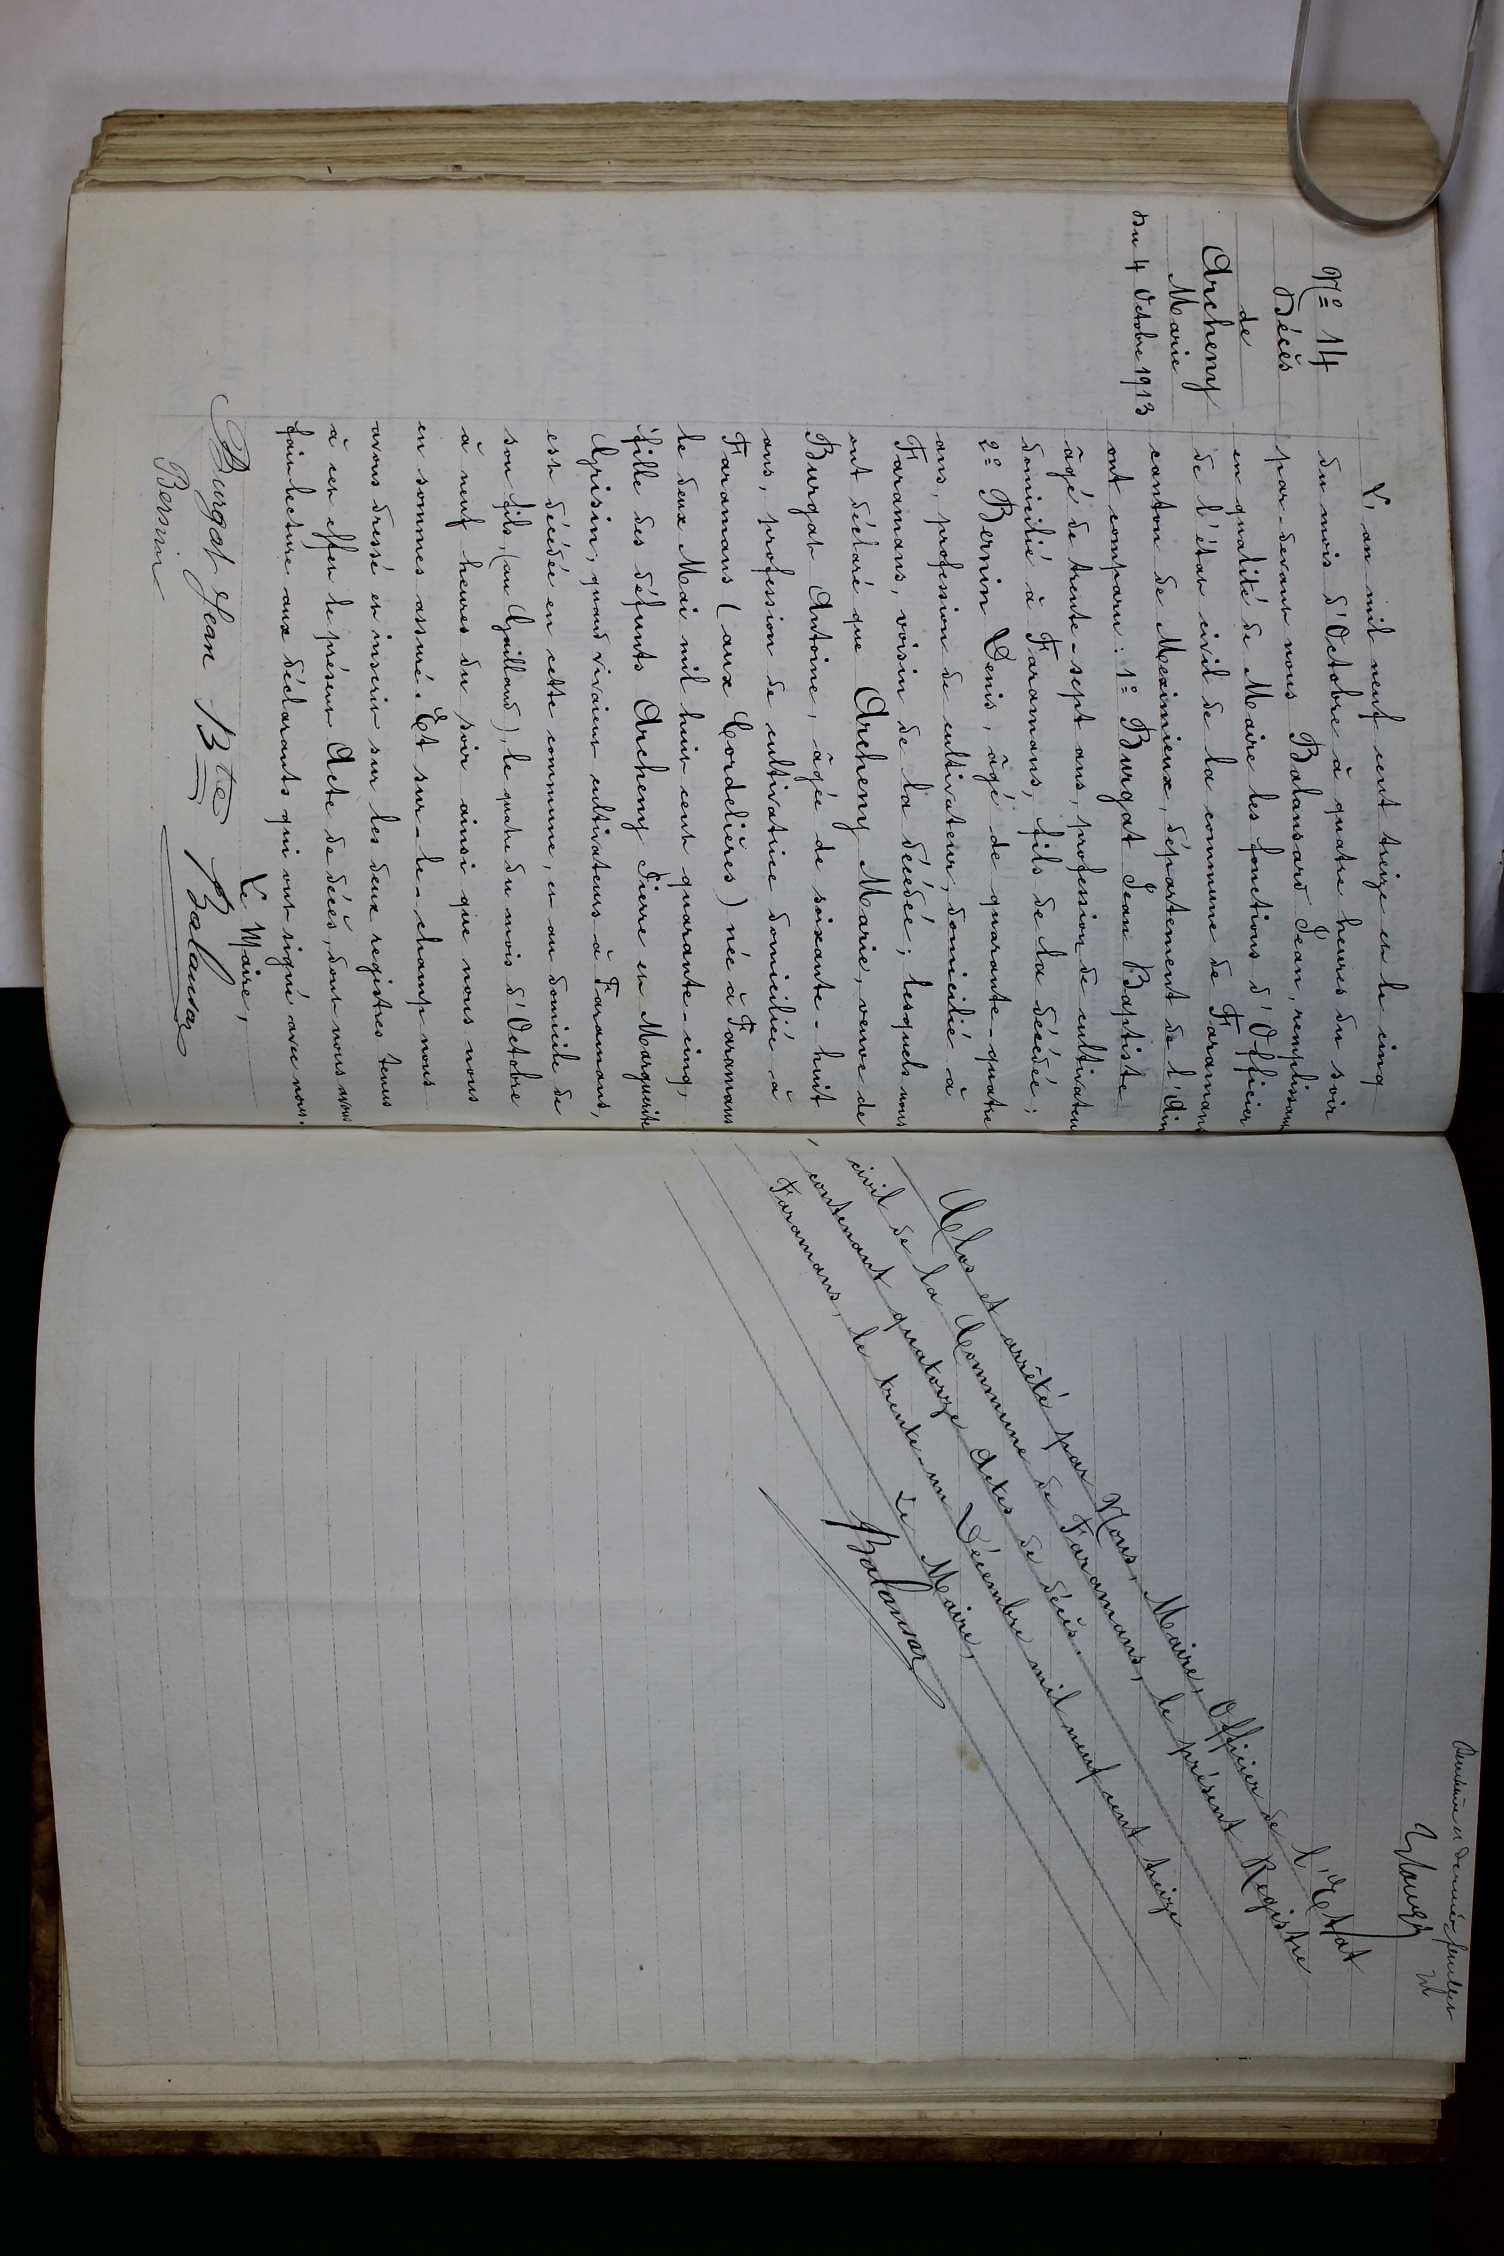 N° 14
Décès
de
Archeny
Marie
Du 4 Octobre 1913
L'an mil neuf cent treize et le cinq
du mois d'Octobre à quatre heures du soir
par-devant nous Balansard Jean, remplissant
en qualité de Maire les fonctions d'Officier
de l'état civil de la commune de Faramans
canton de Meximieux, département de l'Ain
ont comparu : 1° Burgat Jean Baptiste
âgé de trente-sept ans, profession de cultivateur
domicilié à Faramans, fils de la décédée ;
2° Bernin Denis, âgé de quarante-quatre
ans, profession de cultivateur, domicilié à
Faramans, voisin de la décédée ; lesquels nous
ont déclaré que Archeny Marie, veuve de
Burgat Antoine, âgée de soixante-huit
ans, profession de cultivatrice domiciliée à
Faramans (aux Cordelières) née à Faramans
le deux Mai mil huit cent quarante-cinq,
fille des défunts Archeny Pierre et Marguerite
Grisin, quand vivaient cultivateurs à Faramans,
est décédée en cette commune, et au domicile de
son fils, (au Guilland), le quatre du mois d'Octobre
à neuf heures du soir ainsi que nous nous
en sommes assuré. Et sur-le-champ nous
avons dressé et inscrit sur les deux registres tenus
à cet effet le présent Acte de décès, dont nous avons
fait lecture aux déclarants qui ont signé avec nous.
Le Maire,
Burgat Jean Bte Balansar
Bernin
Clos et arrêté par Nous, Maire, Officier de l'Etat
civil de la Commune de Faramans, le présent Registre
contenant quatorze Actes de décès.
Faramans, le trente-un Décembre mil neuf cent treize
Le Maire,
Balansar
et dernier feuillet